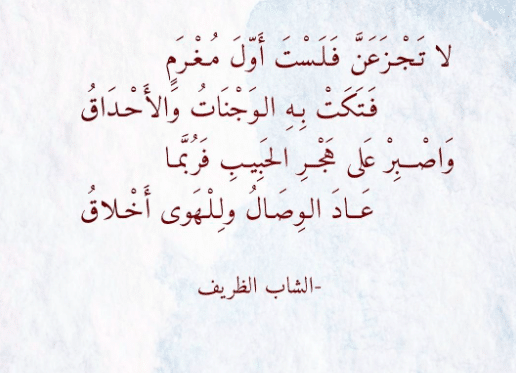 لا تَجْزَعَنَّ فَلَسْتَ أَوّلَ مُغْرَمٍ
فَتَكَتْ بِهِ الوَجْنَاتُ وَالأَحْدَاقُ
وَاصْــبِرْ عَلى هَجْرِ الحَبِيبِ فَرُبَّمـا
عَــادَ الوِصَالُ ولِلْهَوى أَخْلاقُ
-الشاب الظريف